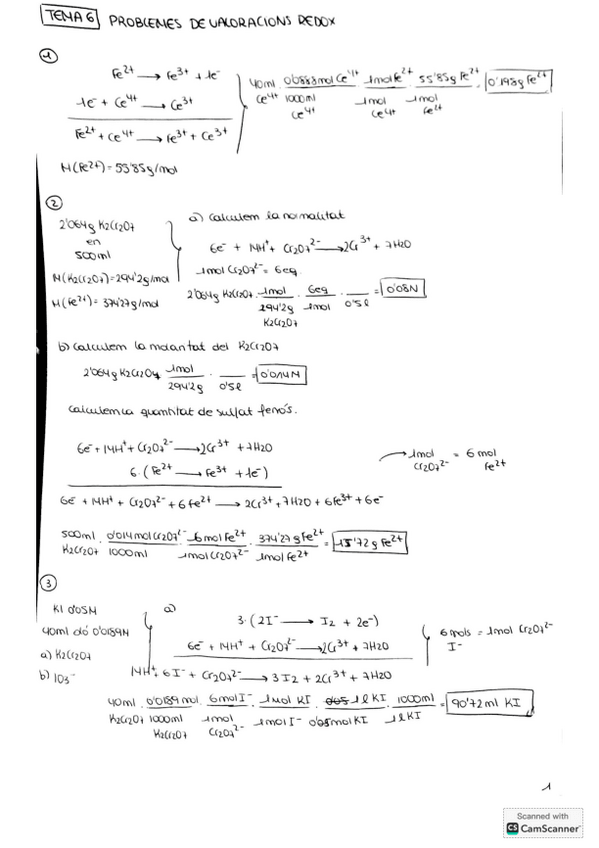 TEMA 6 PROBLEMES DE VALORACIONS REDOX
1
Fe2+ → Fe3+ + 1e-
1e- + Ce4+ → Ce3+
Fe2+ + Ce4+ → Fe3+ + Ce3+
40ml Ce4+ · 0'0888mol Ce4+ / 1000ml Ce4+ · 1mol Fe2+ / 1mol Ce4+ · 55'85g Fe2+ / 1mol Fe2+ = 0'198g Fe2+
M(Fe2+) = 55'85g/mol
2
2'064g K2Cr2O7
en
500ml
M(K2Cr2O7) = 294'2g/mol
M(Fe2+) = 374'27g/mol
a) Calculem la normalitat
6e- + 14H+ + Cr2O7 2- → 2Cr3+ + 7H2O
1mol Cr2O7 2- = 6eq
2'064g K2Cr2O7 · 1mol / 294'2g K2Cr2O7 · 6eq / 1mol · / 0'5l = 0'08N
b) Calculem la molaritat del K2Cr2O7
2'064g K2Cr2O7 · 1mol / 294'2g · / 0'5l = 0'014M
Calculem la quantitat de sulfat ferrós.
6e- + 14H+ + Cr2O7 2- → 2Cr3+ + 7H2O
6·(Fe2+ → Fe3+ + 1e-)
→ 1mol Cr2O7 2- = 6 mol Fe2+
6e- + 14H+ + Cr2O7 2- + 6Fe2+ → 2Cr3+ + 7H2O + 6Fe3+ + 6e-
500ml K2Cr2O7 · 0'014mol Cr2O7 2- / 1000ml · 6mol Fe2+ / 1mol Cr2O7 2- · 374'27g Fe2+ / 1mol Fe2+ = 15'72g Fe2+
3
KI 0'05M
40ml d 0'0189N
a) K2Cr2O7
b) IO3-
a)
3·(2I- → I2 + 2e-)
6e- + 14H+ + Cr2O7 2- → 2Cr3+ + 7H2O
14H+ + 6I- + Cr2O7 2- → 3I2 + 2Cr3+ + 7H2O
6 mols I- = 1mol Cr2O7 2-
40ml K2Cr2O7 · 0'0189mol / 1000ml K2Cr2O7 · 6mol I- / 1mol Cr2O7 2- · 1mol KI / 1mol I- · 1l KI / 0'05mol KI · 1000ml / 1l KI = 90'72ml KI
1
Scanned with
CS CamScanner